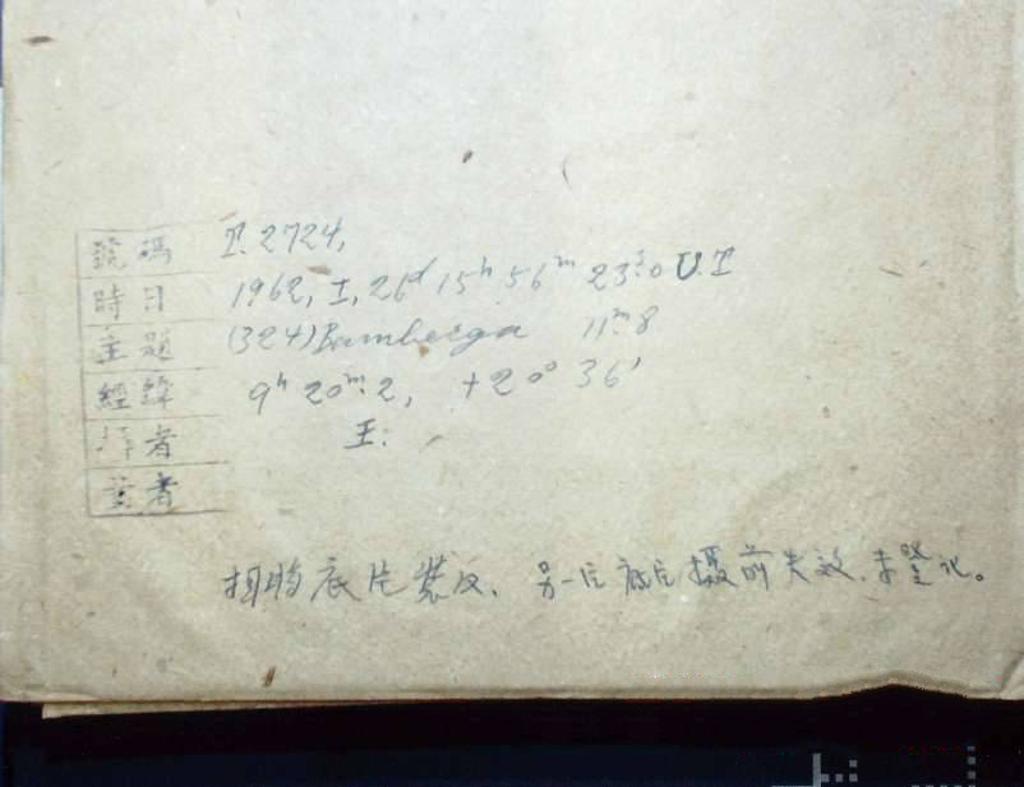 號碼 T. 2724,
時日 1962, I, 26ᵈ 15ʰ 56ᵐ 23ˢ.0 U.T
主題 (324) Bamberga 11ᵐ.8
經緯 9ʰ 20ᵐ.2, +20° 36′
者 王:
者
底片裝反、另一片底片攝前失效、未登记。